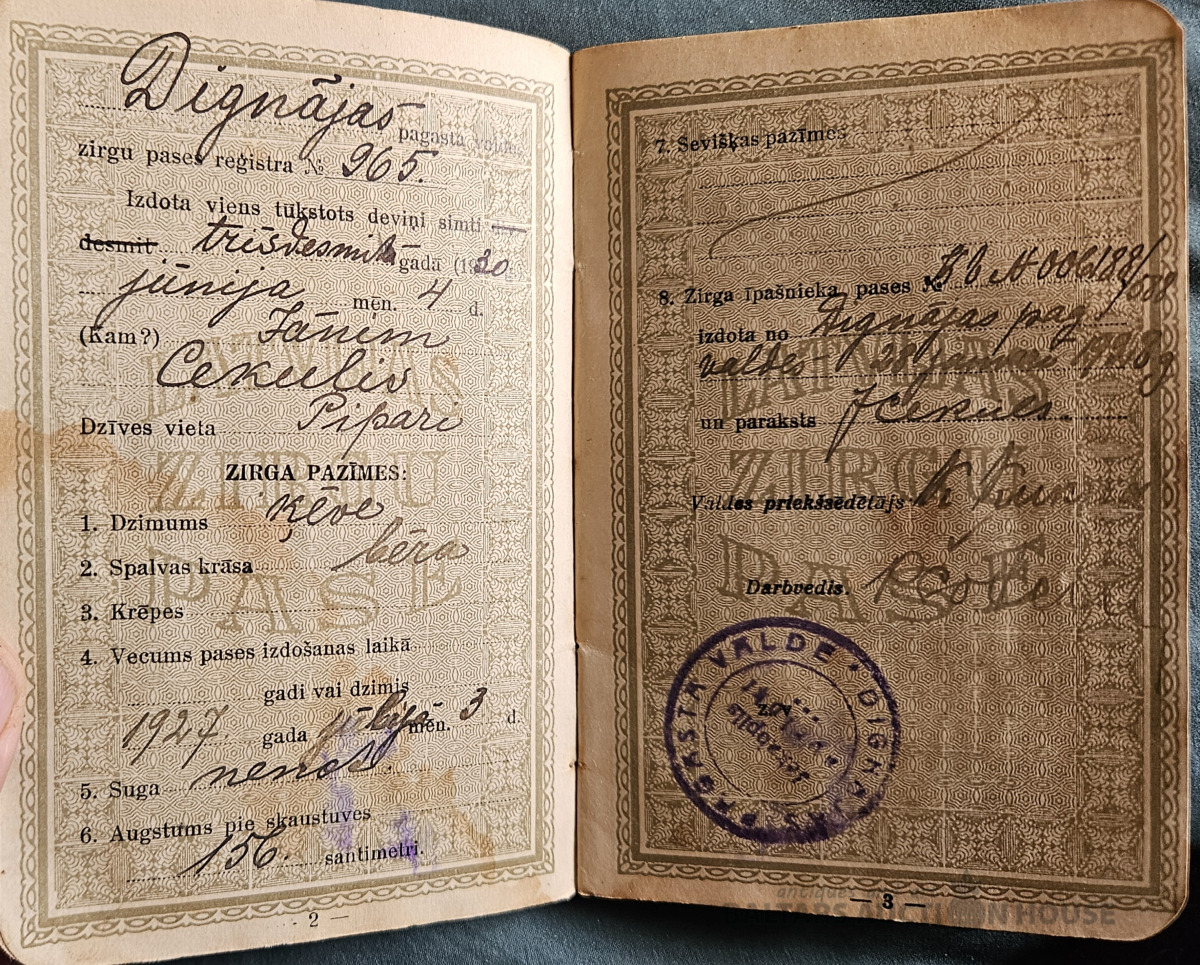 Dignājas pagasta valdes
zirgu pases reģistra № 965.
Izdota viens tūkstots deviņi simti
desmit trīsdesmitā gadā (1930.
jūnija mēn. 4 d.
(Kam?) Jānim
Cekulis
Dzīves vieta Pipari
ZIRGA PAZĪMES:
1. Dzimums ķēve
2. Spalvas krāsa bēra
3. Krēpes
4. Vecums pases izdošanas laikā
gadi vai dzimis
1927. gada jūlija mēn. 3 d.
5. Suga nenot.
6. Augstums pie skaustuves
156. santimetri.
— 2 —
7. Sevišķas pazīmes
8. Zirga īpašnieka pases №
izdota no Dignājas pag.
valdes 1928 g
un paraksts JCekuls.
Valdes priekšsēdētājs
Darbvedis.
PAGASTA VALDE • DIGNĀJAS
LATVIJAS
ZIRGU
PASE
LATVIJAS
ZIRGU
PASE
— 3 —
antiques
AUCTION HOUSE